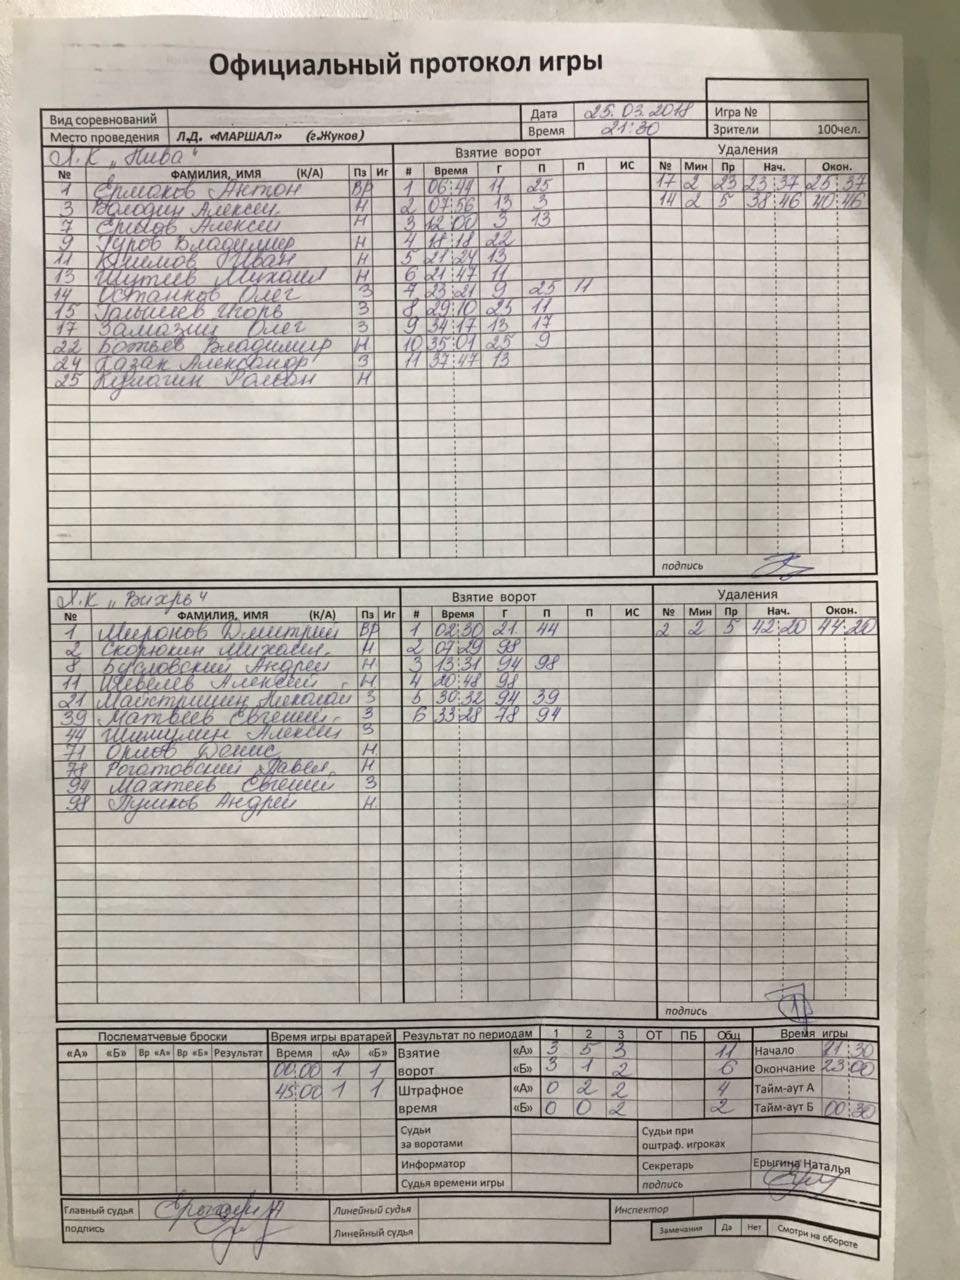 Официальный протокол игры
Вид соревнований Дата 25.03.2018 Игра №
Место проведения Л.Д. «МАРШАЛ» (г.Жуков) Время 21:30 Зрители 100чел.
Л.К „Нива“ Взятие ворот Удаления
№ ФАМИЛИЯ, ИМЯ (К/А) Пз Иг # Время Г П П ИС № Мин Пр Нач. Окон.
1 Ермаков Антон ВР 1 06:44 11 25 17 2 23 23:37 25:37
3 Володин Алексей Н 2 07:56 13 3 14 2 5 38:46 40:46
7 Алексей Н 3 12:00 3 13
9 Гуров Владимир Н 4 18:18 22
11 Климов Иван Н 5 21:24 13
13 Шутеев Михаил Н 6 21:47 11
14 Останков Олег З 7 23:21 9 25 11
15 Галышев Игорь З 8 29:10 25 11
17 Замазий Олег З 9 34:17 13 17
22 Божьев Владимир Н 10 35:01 25 9
24 Казак Александр З 11 37:47 13
25 Кулагин Н
подпись
Л.К „Вихрь“ Взятие ворот Удаления
№ ФАМИЛИЯ, ИМЯ (К/А) Пз Иг # Время Г П П ИС № Мин Пр Нач. Окон.
1 Миронов Дмитрий ВР 1 02:30 21 44 2 2 5 42:20 44:20
2 Скорюкин Михаил Н 2 07:29 98
8 Бусловский Андрей Н 3 13:31 94 98
11 Шевелев Алексей Н 4 20:48 98
21 Майстришин Николай З 5 30:32 94 39
39 Матвеев Евгений З 6 33:28 78 94
44 Шишулин Алексей З
71 Орлов Денис Н
78 Рогатовский Павел Н
94 Махтеев Евгений З
98 Пушков Андрей Н
подпись
Послематчевые броски Время игры вратарей Результат по периодам 1 2 3 ОТ ПБ Общ Время игры
«А» «Б» Вр «А» Вр «Б» Результат Время «А» «Б» Взятие «А» 3 5 3 11 Начало 21:30
00:00 1 1 ворот «Б» 3 1 2 6 Окончание 23:00
45:00 1 1 Штрафное «А» 0 2 2 4 Тайм-аут А
время «Б» 0 0 2 2 Тайм-аут Б 00:30
Судьи за воротами Судьи при оштраф. игроках
Информатор Секретарь Ерыгина Наталья
Судья времени игры подпись
Главный судья Линейный судья Инспектор
подпись Линейный судья Замечания Да Нет Смотри на обороте